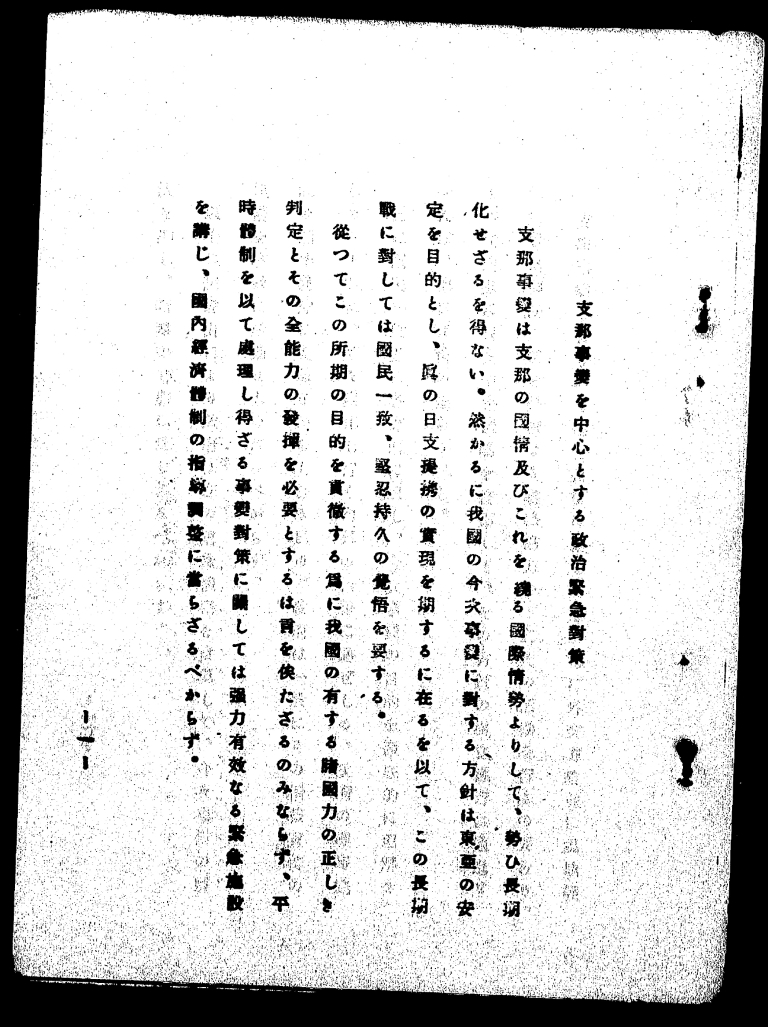 支那事變を中心とする政治緊急對策
支那事變は支那の國情及びこれを繞る國際情勢よりして、勢ひ長期
化せざるを得ない。然かるに我國の今次事變に對する方針は東亞の安
定を目的とし、眞の日支提携の實現を期するに在るを以て、この長期
戰に對しては國民一致、堅忍持久の覺悟を要する。
從つてこの所期の目的を貫徹する爲に我國の有する諸國力の正しき
判定とその全能力の發揮を必要とするは言を俟たざるのみならず、平
時體制を以て處理し得ざる事變對策に關しては强力有效なる緊急施設
を講じ、國內經濟體制の指導調整に當らざるべからず。
— 1 —